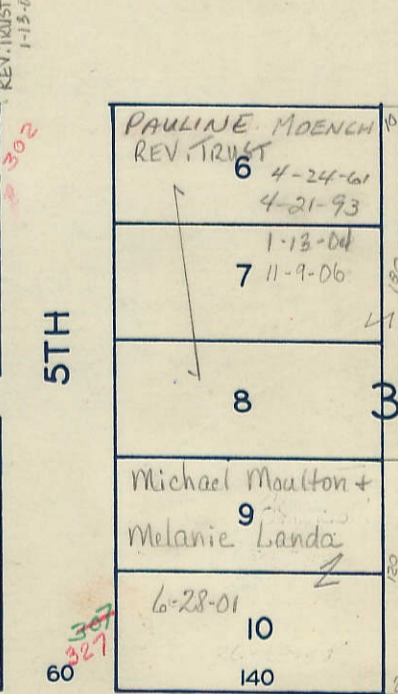 REV. TRUST
1-13-0
302
PAULINE MOENCH
REV. TRUST
6
4-24-61
4-21-93
1-13-04
7
11-9-06
5TH
8
3
Michael Moulton +
9
Melanie Landa
6-28-01
307
327
10
60
140